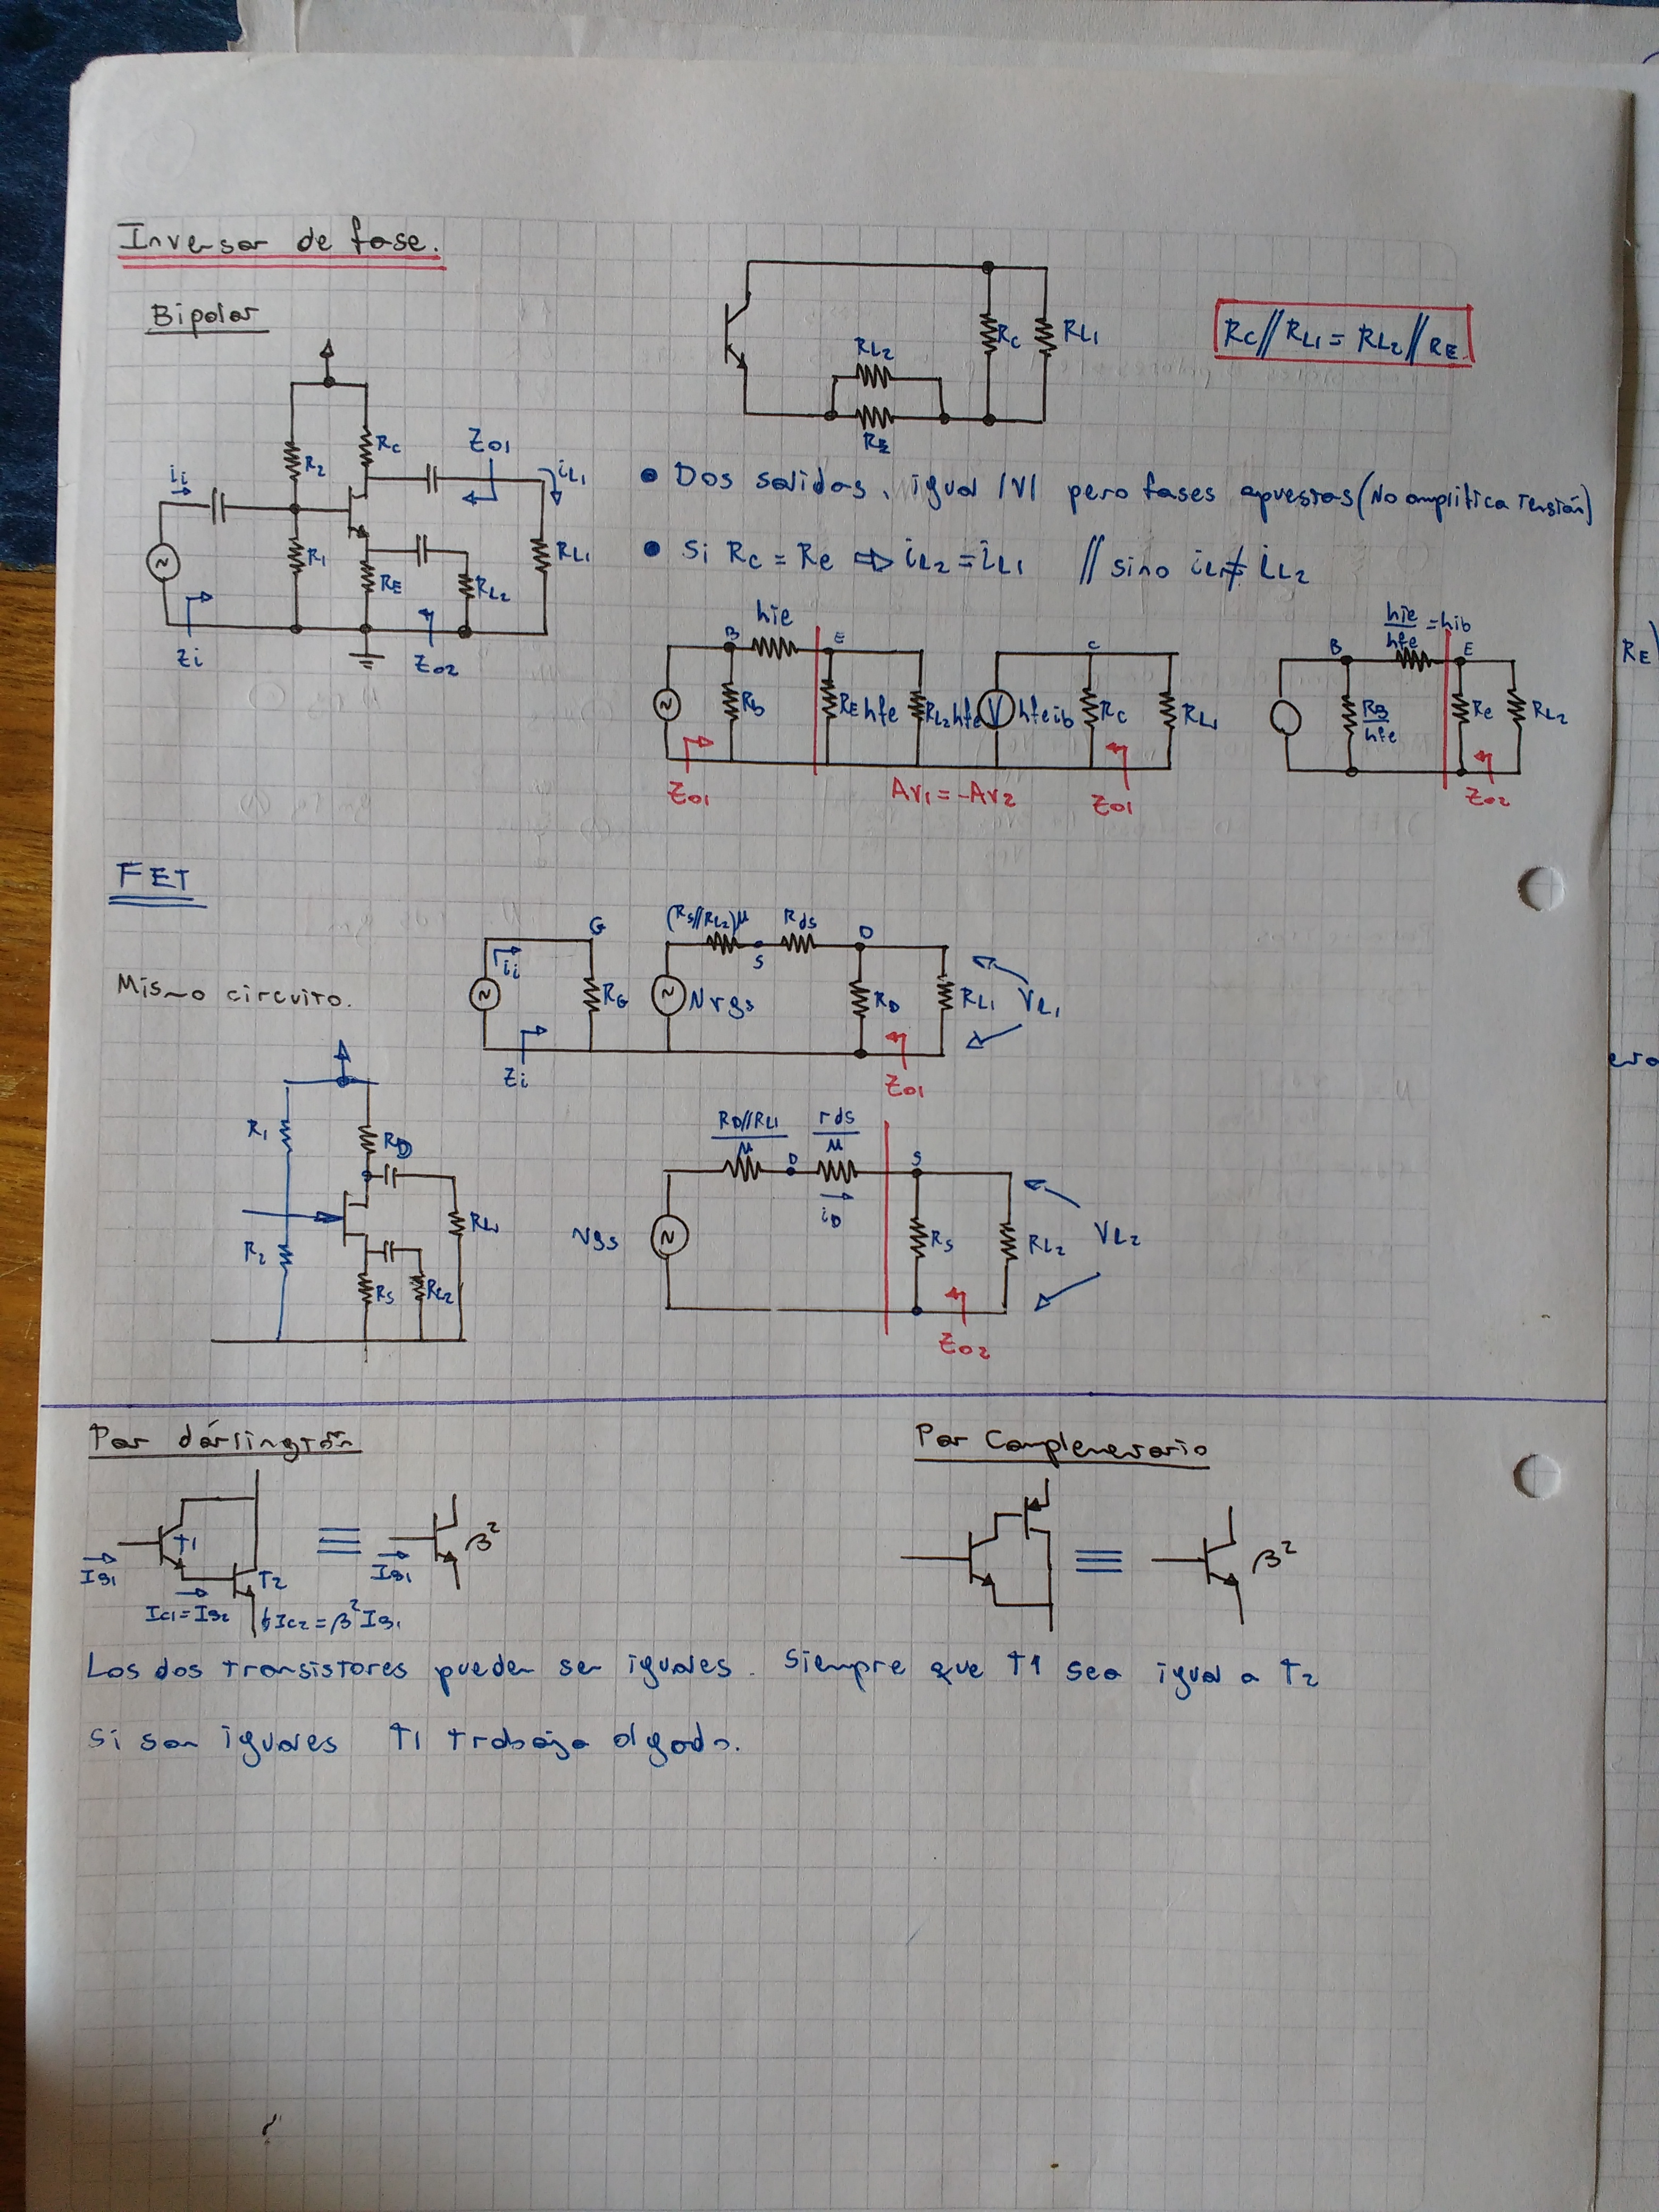 Inversor de fase.
Bipolar
RC // RL1 = RL2 // RE
RC
RL1
RL2
RE
R2
RC
Zo1
iL1
ii
R1
RE
RL2
RL1
Zi
Zo2
• Dos salidas, igual |V| pero fases opuestas (No amplifica tensión)
• Si Rc = Re ⇒ iL2 = iL1 // sino iL1 ≠ iL2
B
hie
E
Rb
RE hfe
RL2 hfe
hfe ib
C
RC
RL1
Zo1
Av1 = -Av2
Zo1
B
hie/hfe = hib
E
RB/hfe
Re
RL2
Zo2
RE)
FET
Mismo circuito.
G
(Rs//RL2)μ
Rds
S
D
ii
RG
RD
RL1
VL1
Zi
Zo1
R1
RD
R2
RS
RL2
RL1
RD//RL1/μ
rds/μ
D
S
iD
RS
RL2
VL2
Zo2
Par dárlingtón
T1
T2
IB1
IC1 = IB2
IC2 = β² IB1
≡
IB1
β²
Par Complemetario
≡
β²
Los dos transistores pueden ser iguales. Siempre que T1 sea igual a T2
Si son iguales T1 trabaja